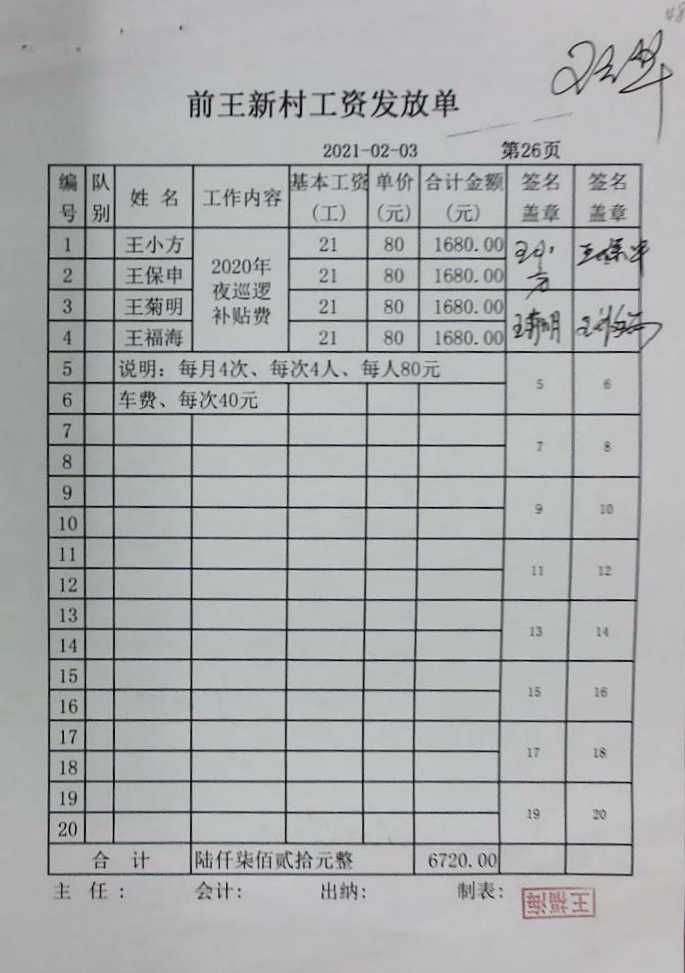 48
前王新村工资发放单
2021-02-03 第26页
编号 队别 姓 名 工作内容 基本工资(工) 单价(元) 合计金额(元) 签名盖章 签名盖章
1 王小方 2020年夜巡逻补贴费 21 80 1680.00 王小方 王保申
2 王保申 21 80 1680.00
3 王菊明 21 80 1680.00 王菊明 王福海
4 王福海 21 80 1680.00
5 说明：每月4次、每次4人、每人80元 5 6
6 车费、每次40元
7 7 8
8
9 9 10
10
11 11 12
12
13 13 14
14
15 15 16
16
17 17 18
18
19 19 20
20
合 计 陆仟柒佰贰拾元整 6720.00
主 任： 会计： 出纳： 制表： 王福海